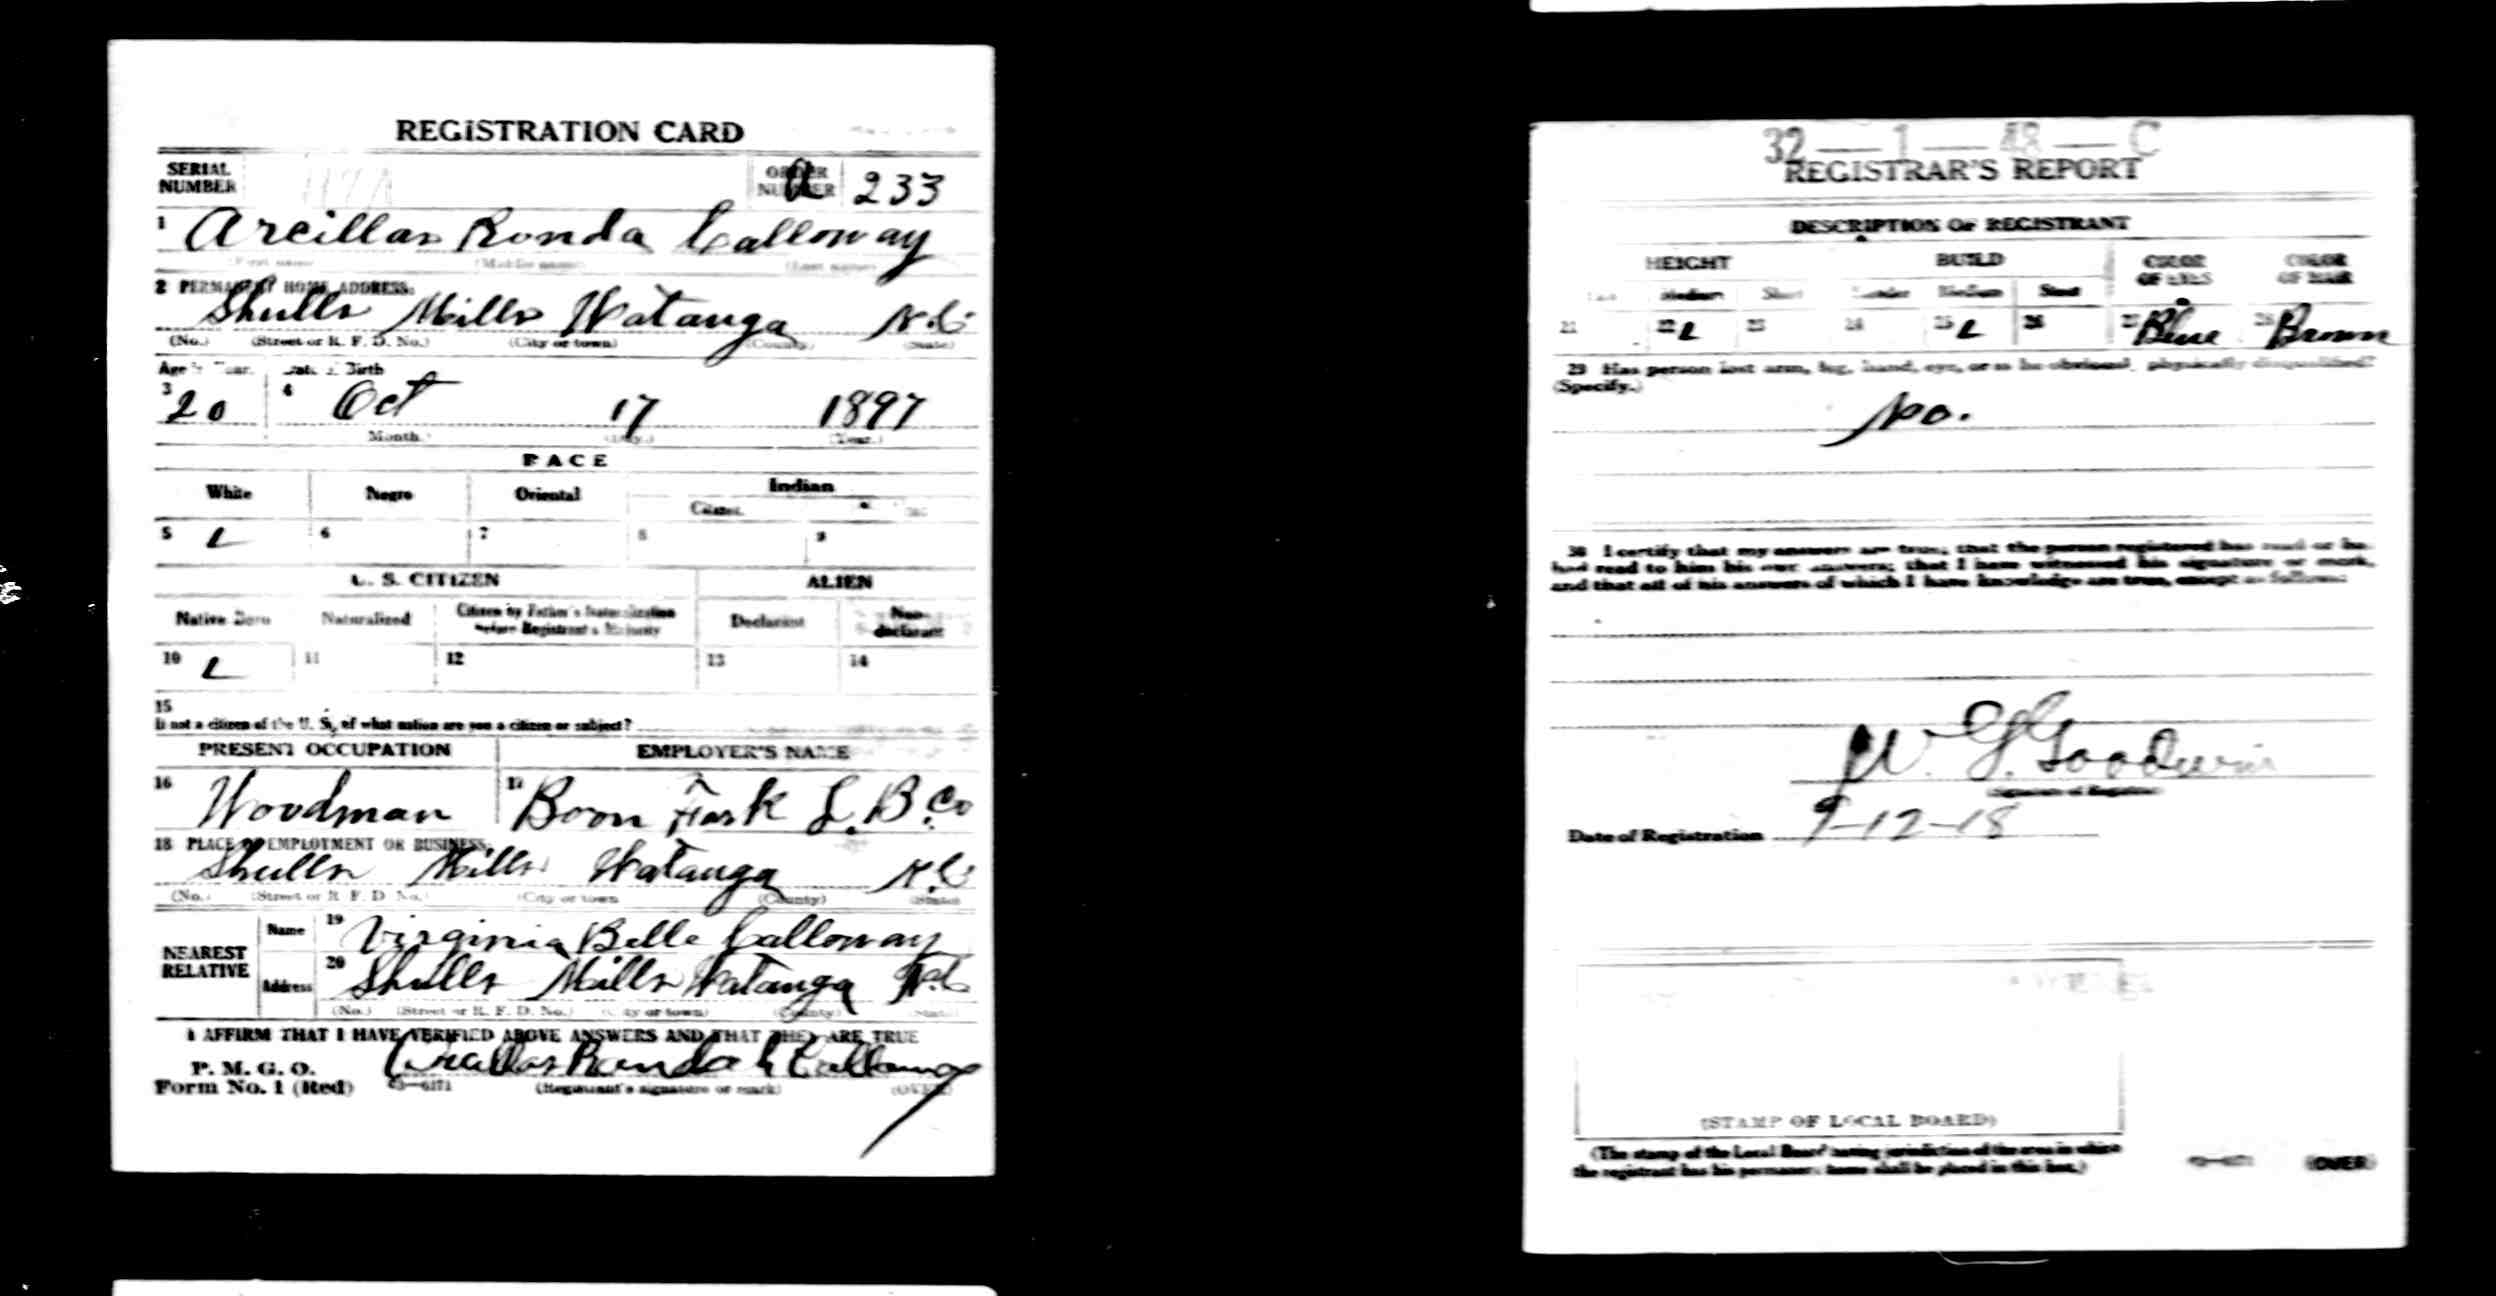 REGISTRATION CARD
SERIAL NUMBER
ORDER NUMBER a 233
1 Arcillas Ronda Calloway
(First name) (Middle name) (Last name)
2 PERMANENT HOME ADDRESS:
Shulls Mills Watauga N.C.
(No.) (Street or R. F. D. No.) (City or town) (County) (State)
Age in Years Date of Birth
3 20 4 Oct 17 1897
Month. (Day.) (Year.)
RACE
White Negro Oriental Indian
Citizen.
5 6 7 8 9
U. S. CITIZEN ALIEN
Native Born Naturalized Citizen by Father's Naturalization before Registrant's Majority Declarant Non-declarant
10 11 12 13 14
15
If not a citizen of the U. S., of what nation are you a citizen or subject?
PRESENT OCCUPATION EMPLOYER'S NAME
16 Woodman 17 Boon Fork L. B. Co
18 PLACE OF EMPLOYMENT OR BUSINESS:
Shulls Mills Watauga N.C.
(No.) (Street or R. F. D. No.) (City or town (County) (State)
NEAREST RELATIVE
Name 19 Virginia Belle Calloway
Address 20 Shulls Mills Watauga N.C.
(No.) (Street or R. F. D. No.) (City or town) (County) (State)
I AFFIRM THAT I HAVE VERIFIED ABOVE ANSWERS AND THAT THEY ARE TRUE
P. M. G. O.
Form No. 1 (Red) 03—6171 Arcillas Ronda Calloway
(Registrant's signature or mark) (OVER)
32—1—48—C
REGISTRAR'S REPORT
DESCRIPTION OF REGISTRANT
HEIGHT BUILD COLOR OF EYES COLOR OF HAIR
Tall Medium Short Slender Medium Stout
21 22 23 24 25 26 27 Blue 28 Brown
29 Has person lost arm, leg, hand, eye, or is he obviously physically disqualified?
(Specify.)
No.
30 I certify that my answers are true; that the person registered has read or has
had read to him his own answers; that I have witnessed his signature or mark,
and that all of his answers of which I have knowledge are true, except as follows:
W. G. Goodwin
(Signature of Registrar)
Date of Registration 9-12-18
(STAMP OF LOCAL BOARD)
(The stamp of the Local Board having jurisdiction of the area in which
the registrant has his permanent home shall be placed in this box.)
03—6171 (OVER)